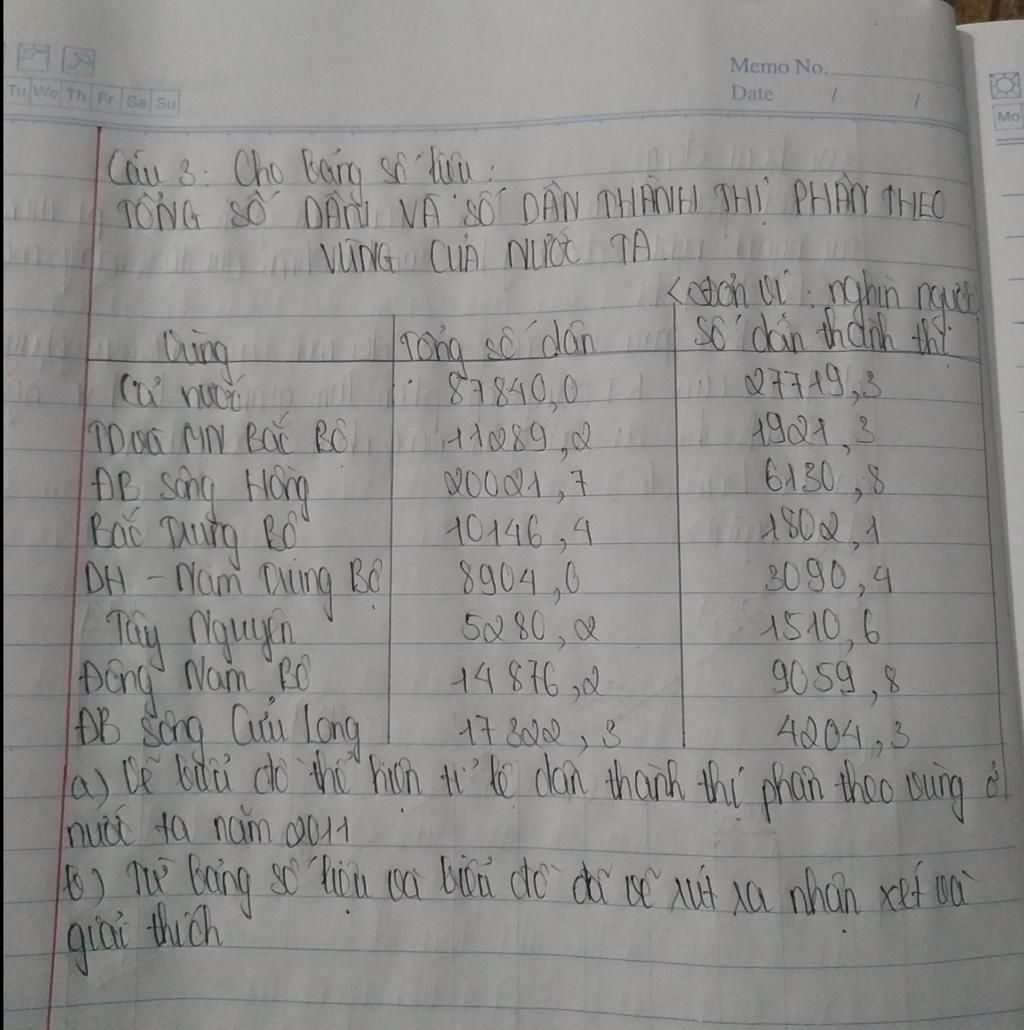 Memo No.
Date / /
Tu We Th Fr Sa Su
Mo
Câu 3: Cho Bảng số liệu:
TỔNG SỐ DÂN VÀ SỐ DÂN THÀNH THỊ PHÂN THEO
VÙNG CỦA NƯỚC TA.
(đơn vị: nghìn người
Vùng Tổng số dân Số dân thành thị
Cả nước 87840,0 27719,3
TD và MN Bắc Bộ 11289,2 1921,3
ĐB Sông Hồng 20021,7 6130,8
Bắc Trung Bộ 10146,4 1802,1
DH - Nam Trung Bộ 8904,0 3090,4
Tây Nguyên 5280,2 1510,6
Đông Nam Bộ 14876,2 9059,8
ĐB Sông Cửu Long 17322,3 4204,3
a) Vẽ biểu đồ thể hiện tỉ lệ dân thành thị phân theo vùng ở
nước ta năm 2011
b) Từ bảng số liệu và biểu đồ đã vẽ rút ra nhận xét và
giải thích